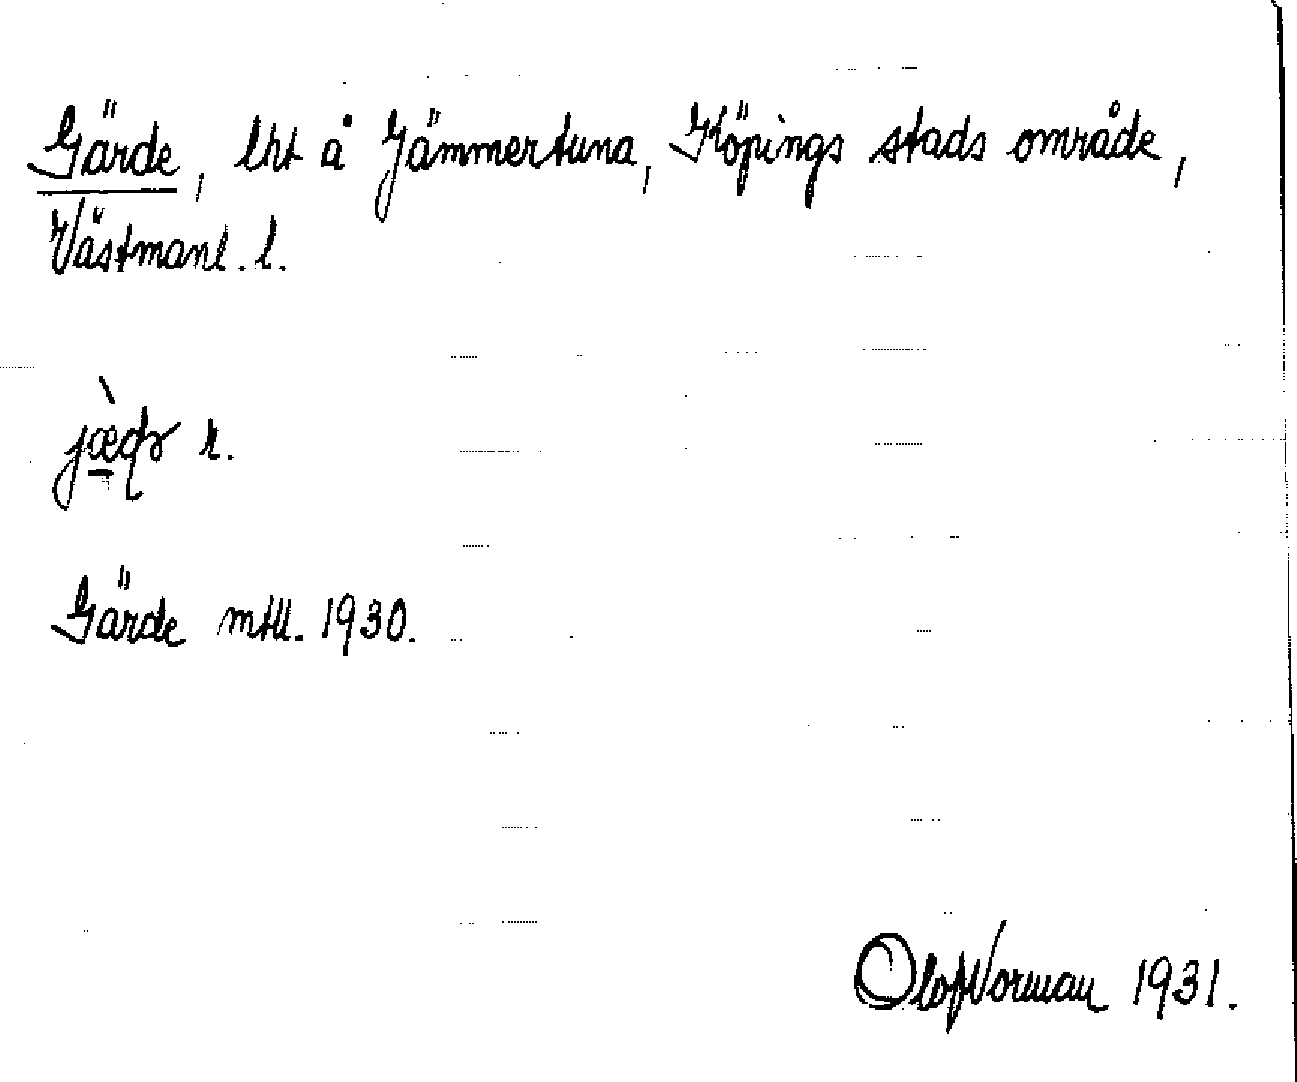 Gärde, lht å Jämmertuna, Köpings stads område,
Västmanl. l.
r.
Gärde mtll. 1930.
Olof Norman 1931.